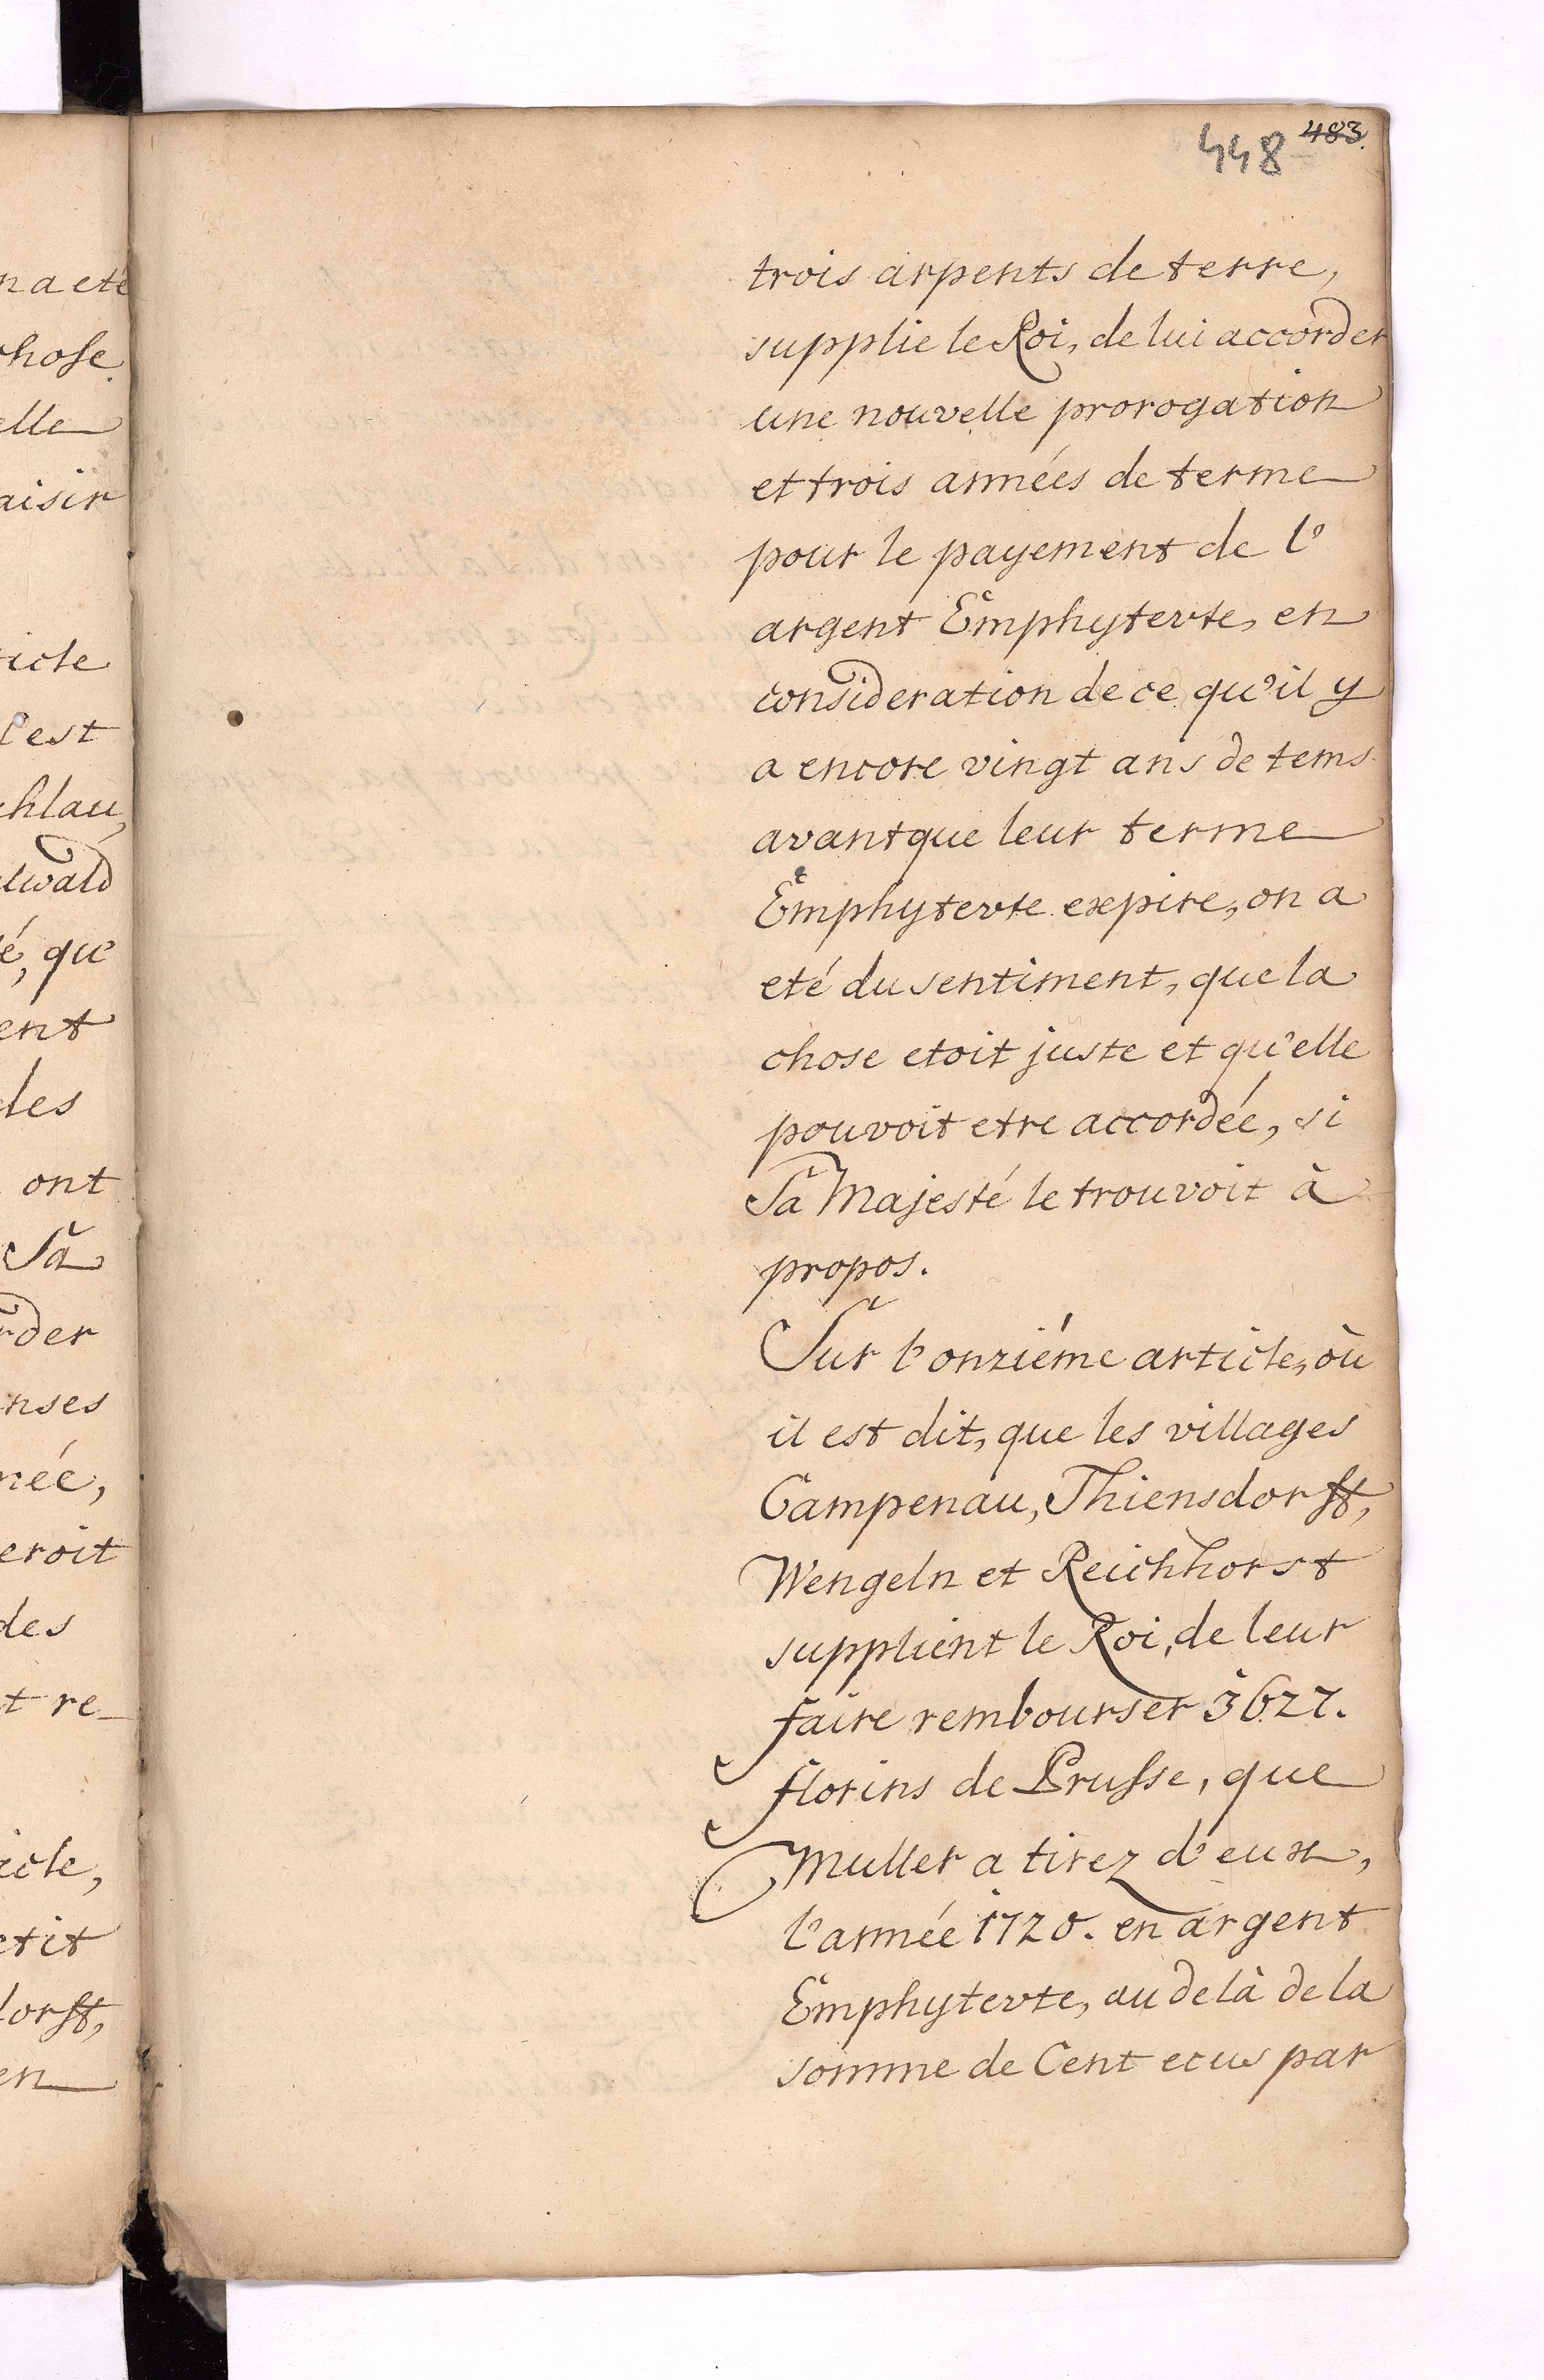 448 483.
trois arpents de terre,
supplie le Roi, de lui accorder
une nouvelle prorogation
et trois années de terme
pour le payement de l'
argent Emphytevte, en
consideration de ce qu'il y
a encore vingt ans de tems
avant que leur terme
Emphytevte expire, on a
eté du sentiment, que la
chose etoit juste et qu'elle
pouvoit etre accordée, si
Sa Majesté le trouvoit à
propos.
Sur l'onziéme article, où
il est dit, que les villages
Campenau, Thiensdorff,
Wengeln et Reichhorst
supplient le Roi, de leur
faire rembourser 3627.
florins de Prusse, que
Muller a tirez d'eux,
l'année 1720. en argent
Emphytevte, au delà de la
somme de Cent ecus par
n a eté
chose
elle
aisir
ticle
l'est
chlau,
lwald
é, que
ent
des
ont
Sa
rder
nses
née,
eroit
des
t re-
icle,
etit
dorff,
en